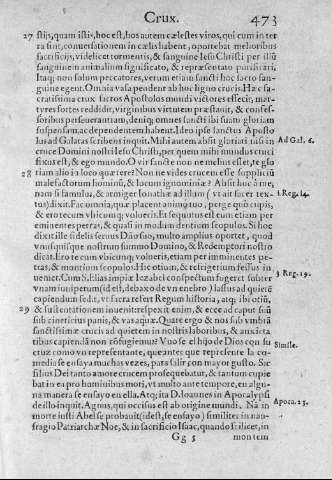 Crux. 473
27 stijs, quam istis, hoc est, hos autem cælestes viros, qui cum in ter
ra sint, conuersationem in cælis habent, oportebat melioribus
sacrificijs, videlicet tormentis, & sanguine Iesu Christi per illũ
sanguinem animalium significato, & repræsentato purificari.
Itaq; non solum peccatores, verum etiam sancti hoc sacro san-
guine egent. Omnia vasa pendent ab hoc ligno crucis. Hæc sa-
cratissima crux sactos Apostolos mundi victores effecit, mar-
tyres fortes reddidit, virginibus virtutem præstauit, & confes-
soribus perseuerantiam, deniq; omnes sancti ibi suam gloriam
suspensam, ac dependentem habent. Ideo ipse sanctus Aposto
lus ad Galatas scribens inquit. Mihi autem absit gloriari nisi in
Ad Gal. 6.
cruce Domini nostri Iesu Christi, per quem mihi mundus cruci
fixus est, & ego mundo. O vir sancte non ne melius esset, te glo
28 riam alio in loco quærere? Non ne vides crucem esse suppliciũ
malefactorum hominũ, & locum ignominiæ? Absit hoc à me,
nam si famulus, & armiger Ionathæ ad illum (vt ait sacer tex-
1. Reg. 14.
tus) dixit. Fac omnia, quæ placent animo tuo, perge quò cupis,
& ero tecum vbicunq; volueris. Et sequutus est eum etiam per
eminentes petras, & quasi in modum dentium scopulos. Si hoc
dixit ille fidelis seruus Dño suo, multo amplius oportet, quod
vnusquisque nostrum summo Domino, & Redemptori nostro
dicat. Ero tecum vbicunq; volueris, etiam per imminentes pe-
tras, & montium scopulos. Hic otium, & refrigerium sessus in
3. Reg. 19.
uenict. Cum S. Elias impiæ Iezabel conspectum fugeret subter
vnam iuniperum (id est, debaxo de vn enebro) lassus ad quietẽ
capiendum sedit, vt sacra refert Regum historia, atq; ibi otiũ,
29 & sustentationem inuenit: respexit enim, & ecce ad caput suũ
sub cinericius panis, & vas aquæ. Quare ergo & nos sub vmbrã
sanctissimæ crucis ad quietem in nostris laboribus, & anxieta
tibus capiendã non cõfugiemus? Vuo se el hijo de Dios con su
cruz como vn representante, que antes que represente la co-
Simile.
media se ensaya muchas vezes, para salir con mayor gusto. Sic
filius Dei tanto amore crucem prosequebatur, & tantum cupie
bat in ea pro hominibus mori, vt multo ante tempore, en algu-
na manera se ensayo en ella. Atq; ita D. Ioannes in Apocalypsi
de isto inquit. Agnus, qui occisus est ab origine mundi. Nã in
Apoca. 13.
morte iusti Abel se probauit (id est, se ensayo) similiter in nau-
fragio Patriarchæ Noe, & in sacrificio Isaac, quando scilicet, in
Gg 5 montem